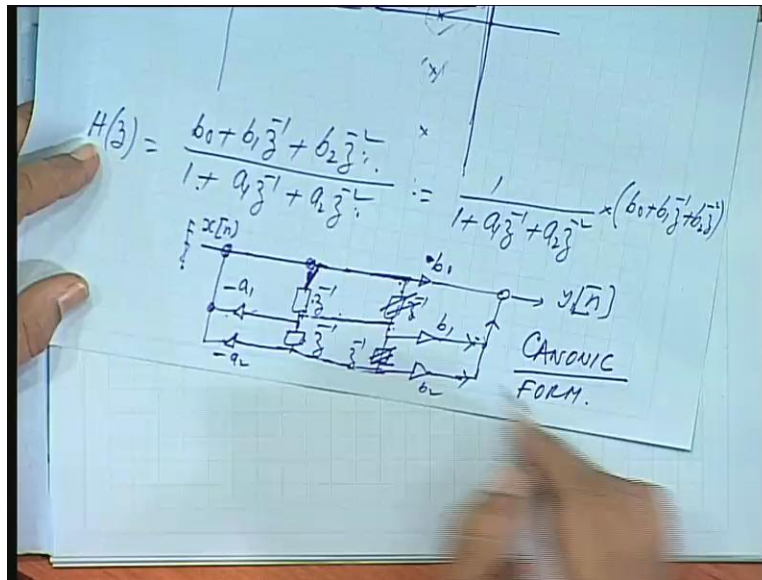 H(z) = b0 + b1 z^-1 + b2 z^-2 / 1 + a1 z^-1 + a2 z^-2 := 1 / 1 + a1 z^-1 + a2 z^-2 × (b0 + b1 z^-1 + b2 z^-2)
x[n] b1
-a1 z^-1 z^-1 b1 y[n]
-a2 z^-1 z^-1 b2
CANONIC
FORM.